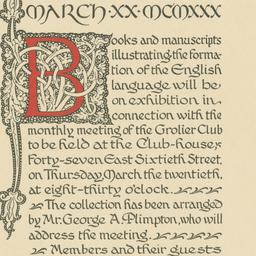 MARCH·XX·MCMXXX
Books and manuscripts
illustrating the forma-
tion of the English
language will be
on exhibition in
connection with the
monthly meeting of the Grolier Club
to be held at the Club-house,
Forty-seven East Sixtieth Street,
on Thursday, March the twentieth,
at eight-thirty o'clock.
The collection has been arranged
by Mr. George A. Plimpton, who will
address the meeting.
Members and their guests